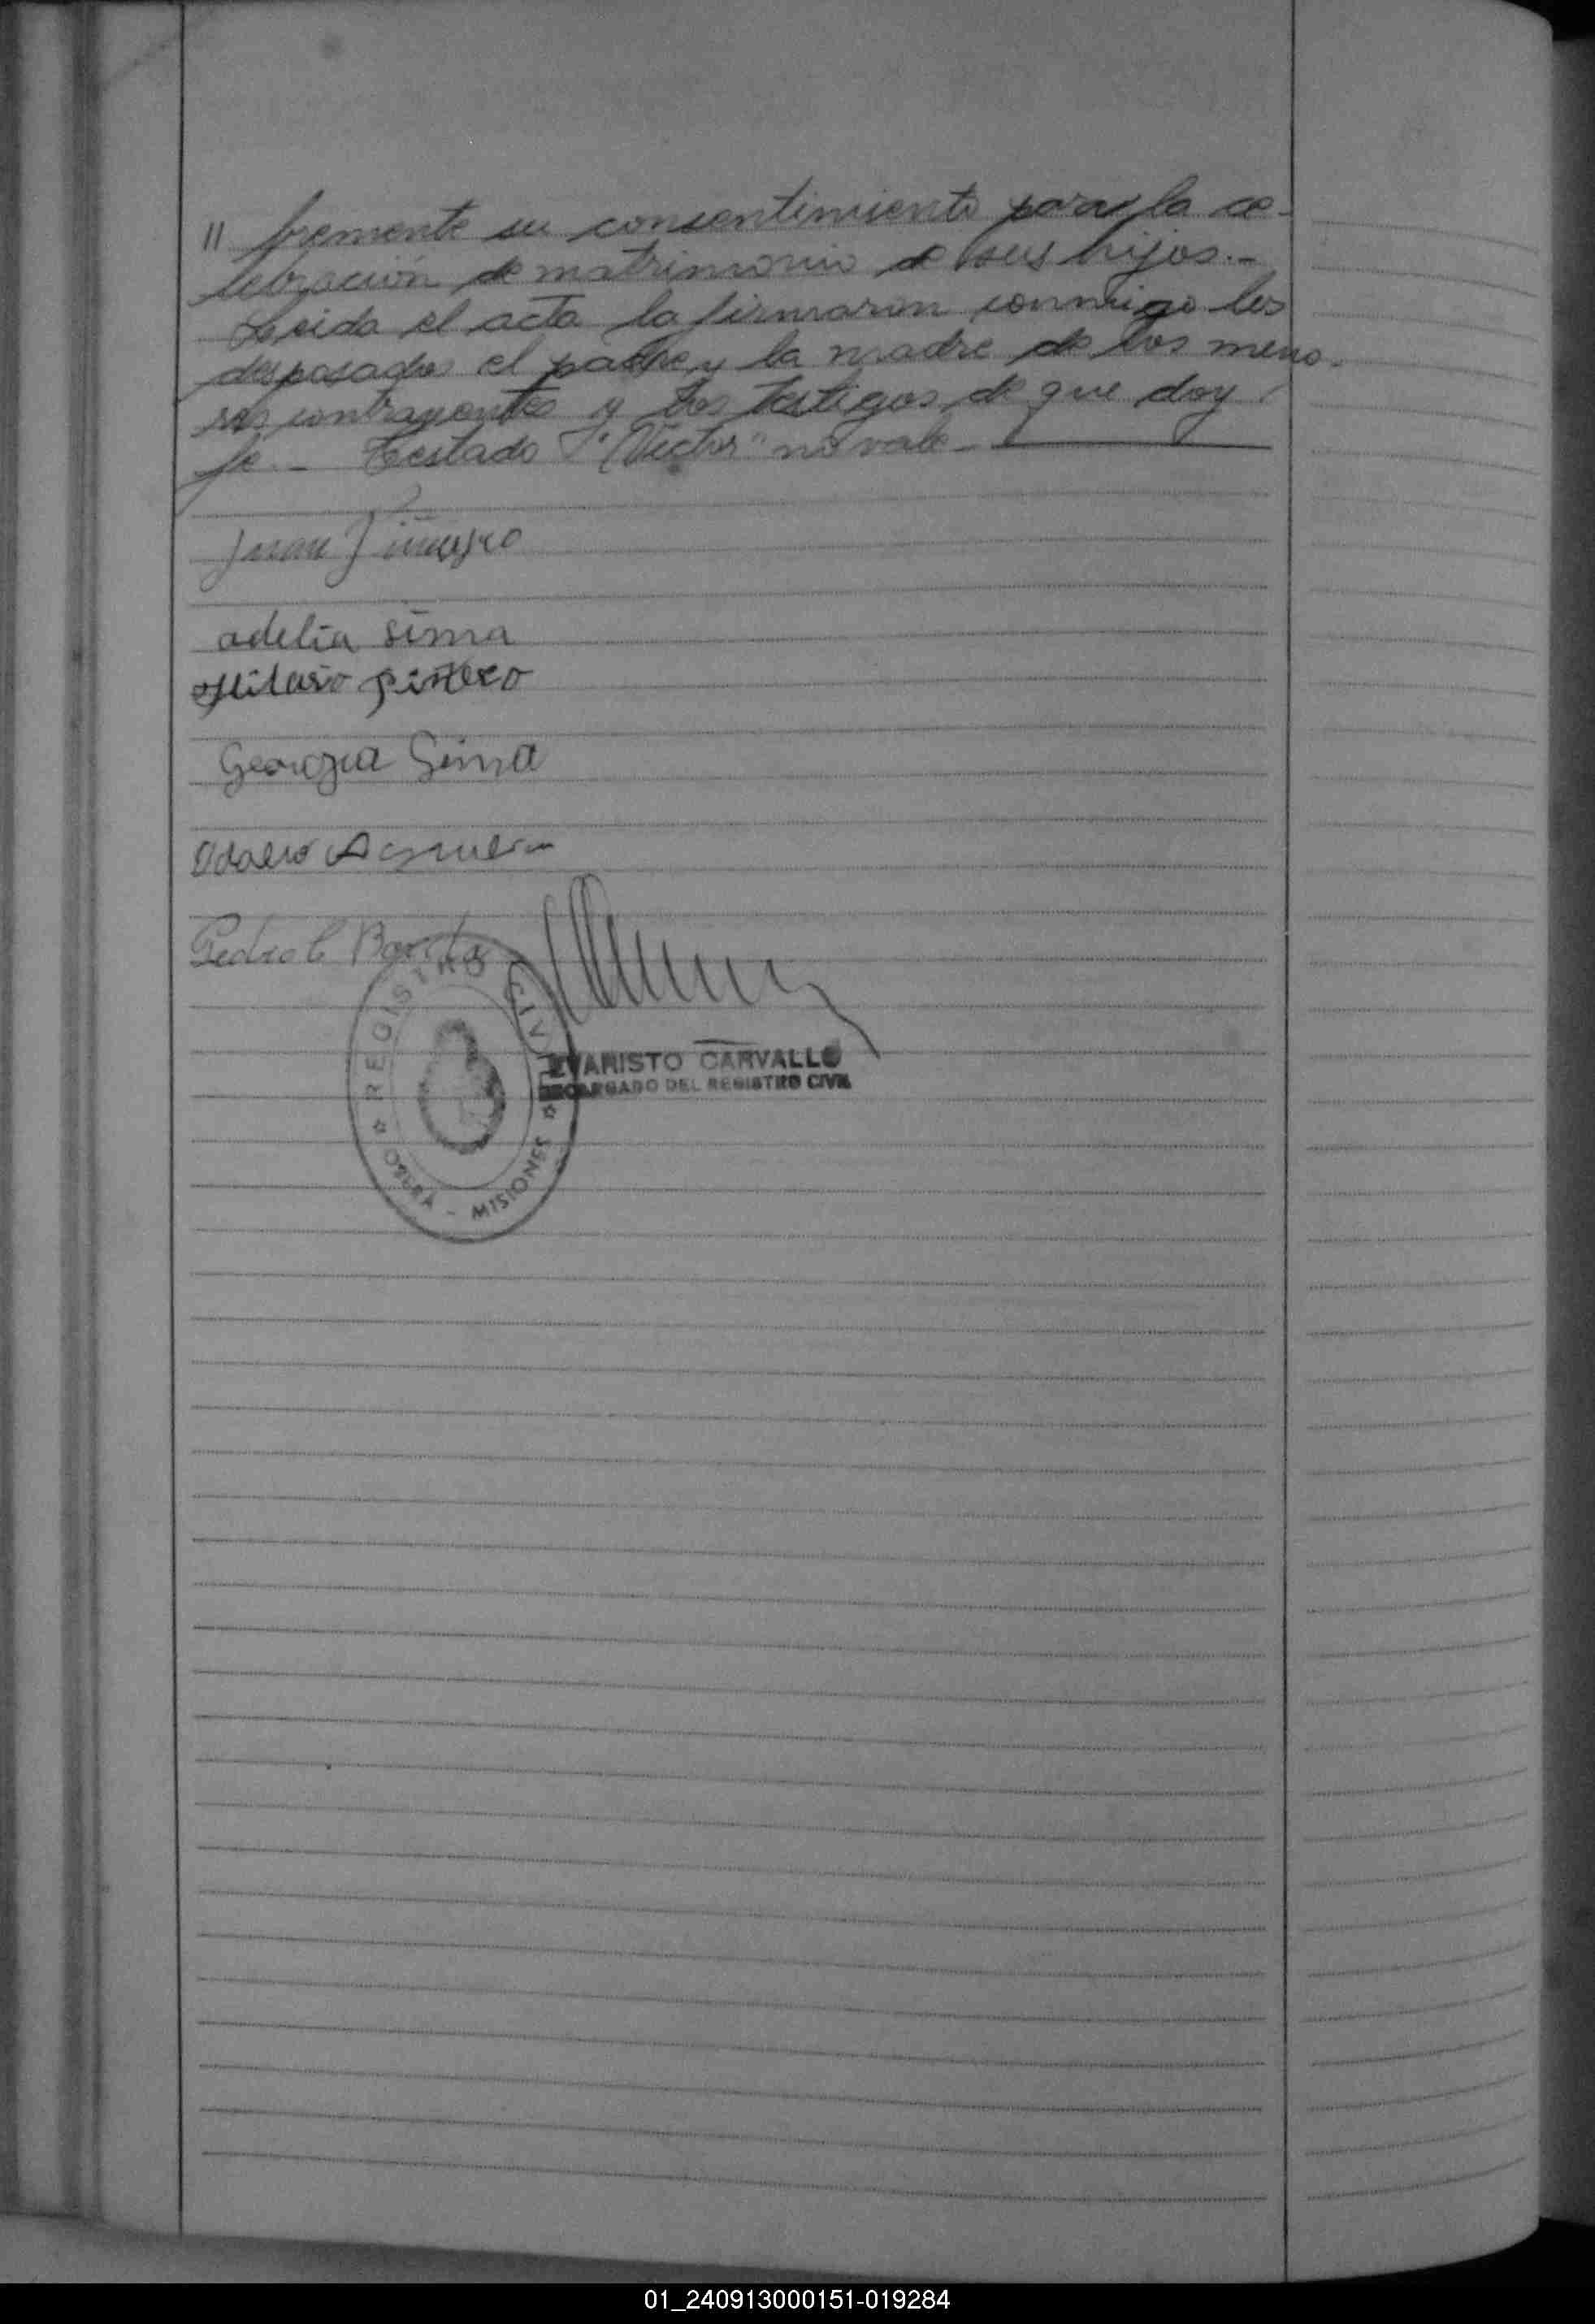 // bremente su consentimiento para la ce-
lebración de matrimonio de sus hijos.-
Leida el acta la firmaron conmigo los
desposados el padre y la madre de los meno-
res contrayentes y los testigos de que doy
fe.- Testado "Victor" no vale-
Juan Piñeyro
adelia sima
Hilario piñero
Georgia Sima
Pedro C
REGISTRO CIVIL
OBERA - MISIONES
EVARISTO CARVALLO
ENCARGADO DEL REGISTRO CIVIL
01_240913000151-019284